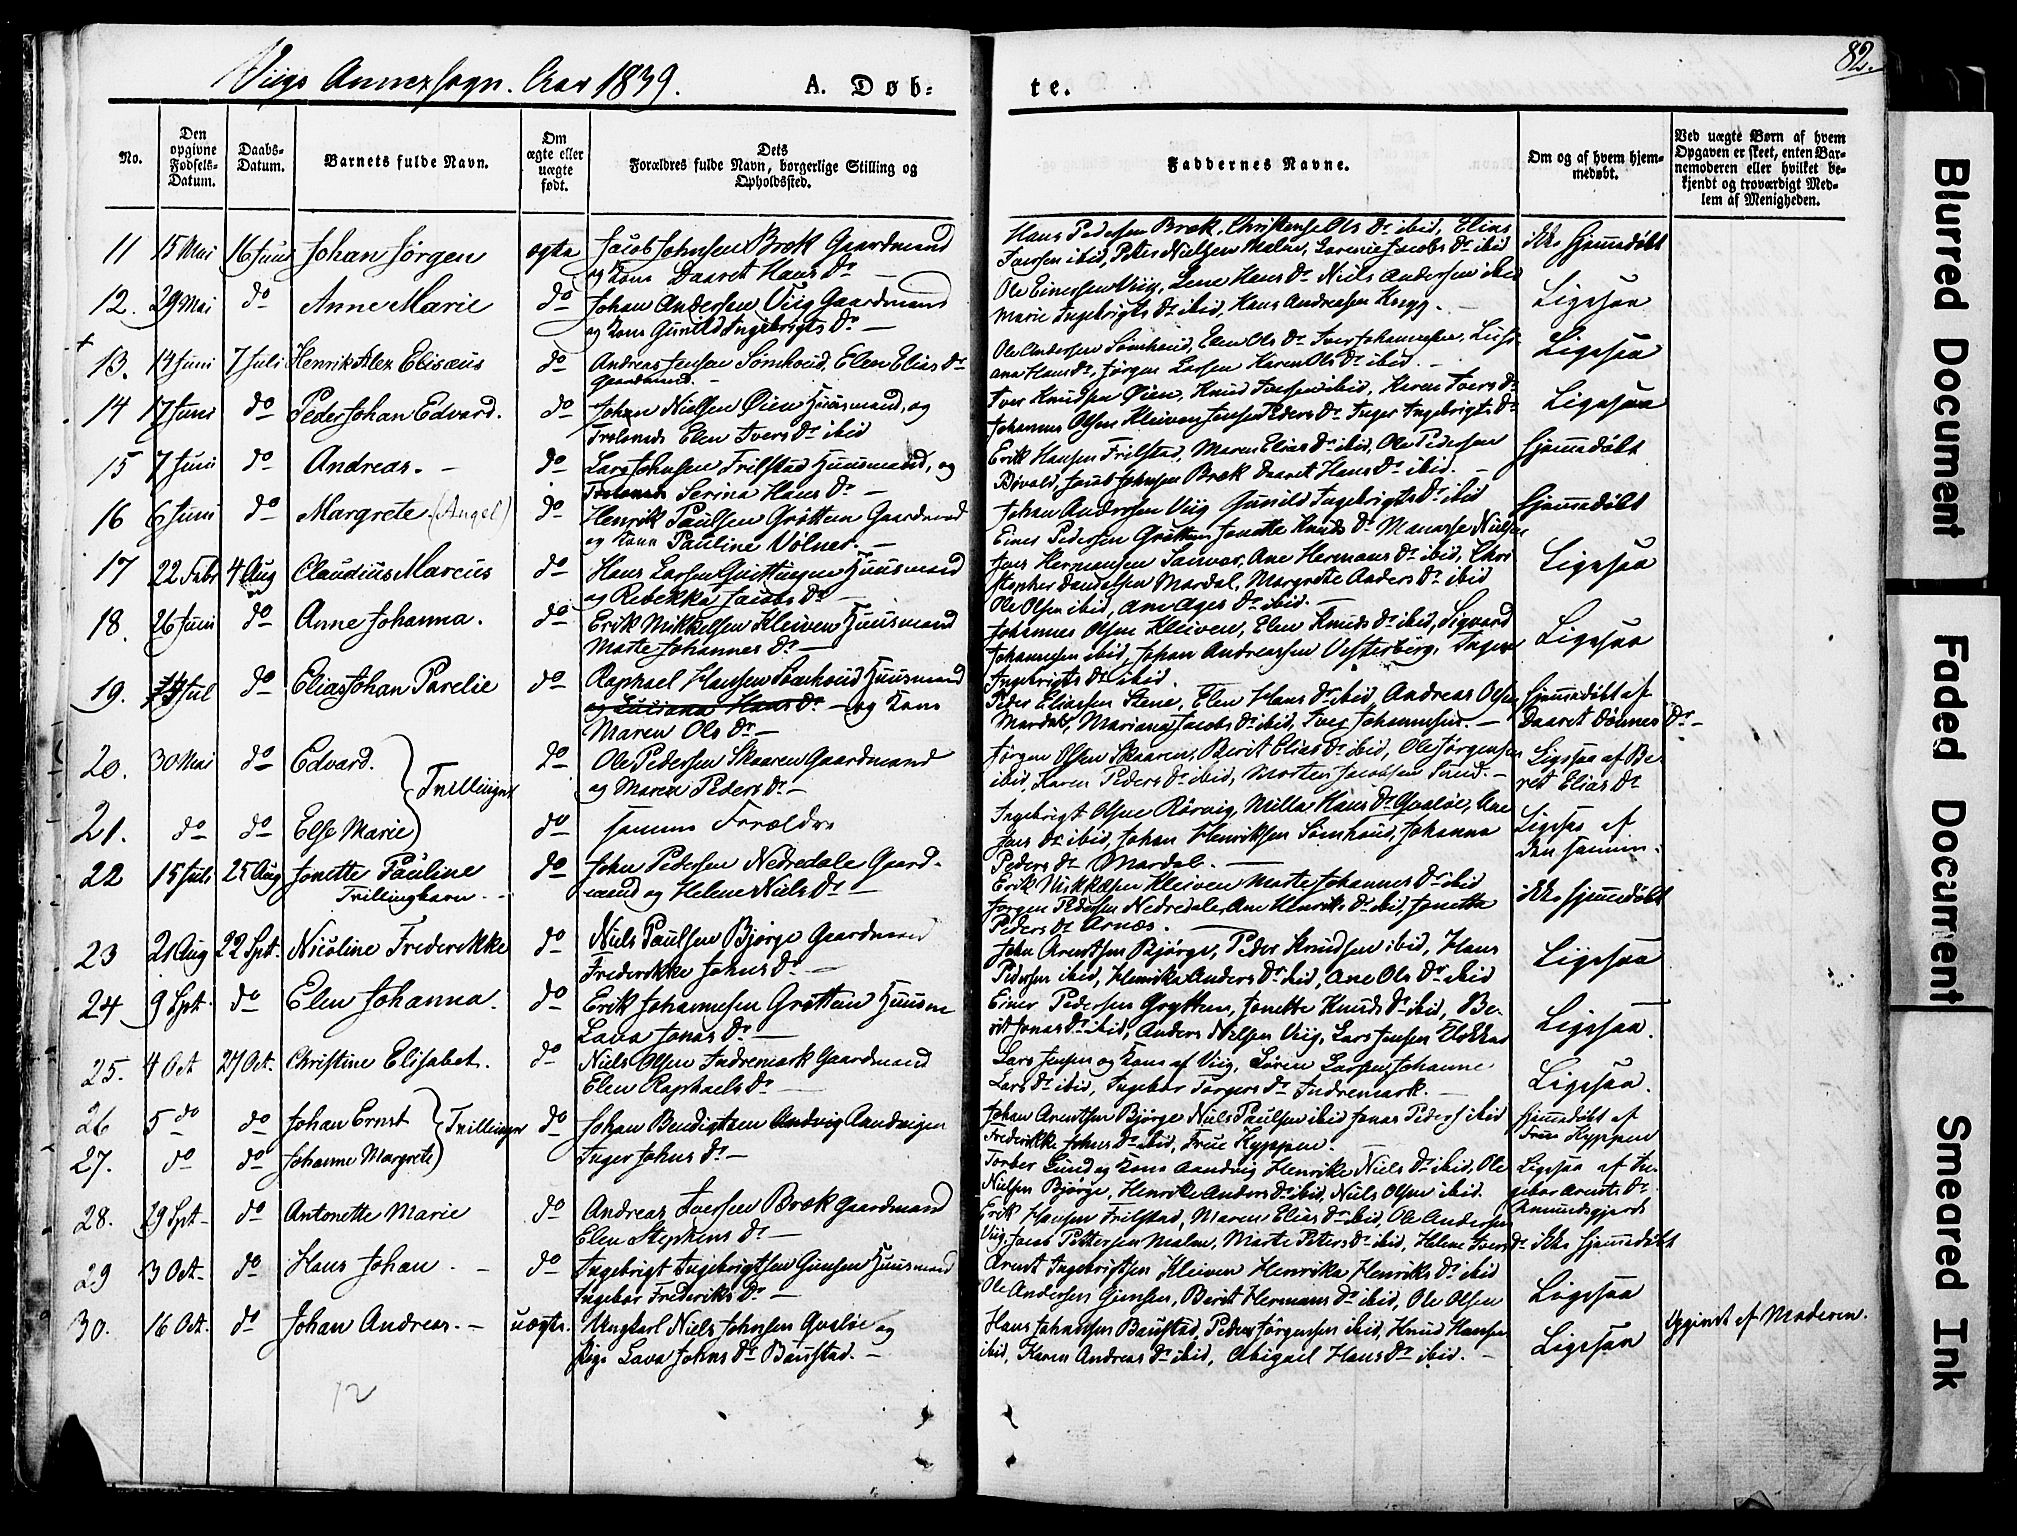 Viigs Annexsogn. Aar 1839.
A. Døb=
te.
82.
No.
Den opgivne Fødsels-Datum.
Daabs-Datum.
Barnets fulde Navn.
Om ægte eller uægte født.
Dets Forældres fulde Navn, borgerlige Stilling og Opholdssted.
Faddernes Navne.
Om og af hvem hjemmedøbt.
Ved uægte Børn af hvem Opgaven er skeet, enten Barnemoderen eller hvilket bekjendt og troværdigt Medlem af Menigheden.
11 15 Mai 16 Juni Johan Jørgen ægte Jacob Johnsen Bræk Gaardmand
og Kone Daaret Hans Dr
Hans Pedersen Bræk, Christense Ols Dr ibid, Elias
Iversen ibid, Peter Nielsen Malm, Lorense Jacobs Dr ibid
ikke hjemmedøbt
12. 29 Mai do Anne Marie do Johan Andersen Viig Gaardmand
og Kone Gunild Ingebrigts Dr
Ole Einersen Viig, Lene Hans Dr Niels Andersen ibid
Marie Ingebrigts Dr ibid, Hans Andreasen
Ligesaa
+
13. 14 Juni 7 Juli Henrik Alex Elisæus do Andreas Jensen Sømhoud, Elen Elias Dr
Gaardmand.
Ole Andersen Sømhoud, Elen Ols Dr Iver Johannesen, Lusi-
ana Hans Dr, Jørgen Larsen Karen Ols Dr ibid
Ligesaa
14 17 Juni do Peder Johan Edvard. do Johan Nielsen Øien Huusmand, og
Trolovede Elen Ivers Dr ibid
Iver Knudsen Øien, Knud Iversen ibid, Karen Ivers Dr
Johannes Olsen Kleiven Peders Dr Inger Ingebrigts Dr
Ligesaa
15 7 Juni do Andreas. do Lars Johnsen Frilstad Huusmand, og
Serina Hans Dr
Erik Hansen Frilstad, Maren Elias Dr ibid, Ole Pedersen
Bøvald, Jacob Johnsen Bræk Daaret Hans Dr ibid.
Hjemmedøbt
16 6 Juni do Margrete (Angel) do Henrik Paulsen Grøtten Gaardmand
og Kone Pauline Vølner.
Johan Andersen Viig Gunild Ingebrigts Dr ibid
Einer Pedersen Grøtten Jonette Knuds Dr Manasse Nielsen
Hjemmedøbt
17 22 Febr 4 Aug Claudius Marcus do Hans Larsen Huusmand
og Rebekka Jacobs Dr
Hermansen Ane Hermans Dr ibid, Chri
stopher Danielsen Mardal, Margrete Anders Dr ibid
Ole Olsen ibid, Ane Ages Dr ibid.
Ligesaa
18. 26 Juni do Anne Johanna. do Erik Mikkelsen Kleiven Huusmand
Marte Johannes Dr
Johannes Olsen Kleiven, Elen Knuds Dr ibid, Sigvard
Johannesen ibid, Johan Andreassen Vesterberg, Inger
Ingebrigts Dr ibid
Ligesaa
19. Jul do Elias Johan Parelie do Raphael Hansen Sømhoud Huusmand
og Luciana Hans Dr - og Kone
Maren Ols Dr
Peder Eliassen Stene, Elen Hans Dr ibid, Andreas Olsen
Mardal, Mariane Jacobs Dr ibid, Iver Johannesen.
Hjemmedøbt af
Daaret Dønnes Dr
20. 30 Mai do Edvard. Tvillinger do Ole Pedersen Skaaren Gaardmand
og Maren Peders Dr
Jørgen Olsen Skaaren, Berit Elias Dr ibid, Ole Jørgensen
ibid, Karen Peders Dr ibid, Morten Jacobsen Sund.
Ligesaa af Be-
ret Elias Dr
21. do do Else Marie do samme Forældre
Ingebrigt Olsen Rørvig, Milla Hans Dr Qvaløe, Ane
Jens Dr ibid, Johan Henriksen Sømhoud, Johanna
Peders Dr Mardal.
Ligesaa af
den samme.
22 15 Juli 25 Aug Jonette Pauline do John Pedersen Nedredale Gaard-
Trillingbarn.
mand og Helene Niels Dr
Erik Mikkelsen Kleiven Marte Johannes Dr ibid
Jørgen Pedersen Nedredale, Ane Henriks Dr ibid, Jonetta
Peders Dr Arnæs.
ikke hjemmedøbt
23 21 Aug 22 Spt. Nicoline Frederikke do Niels Paulsen Bjørge Gaardmand
Frederikke Johns Dr
John Arentsen Bjørge, Peder Knudsen ibid, Hans
Pedersen ibid, Henrike Anders Dr ibid, Ane Ols Dr ibid
Ligesaa
24 9 Spt. do Elen Johanna. do Erik Johannesen Grøtten Huusm
Lava Jonas Dr
Einer Pedersen Grytten, Jonette Knuds Dr ibid, Be-
rit Jonas Dr ibid, Anders Nilsen Viig, Lars Jensen
Ligesaa.
25. 4 Oct 27 Oct. Christine Elisabet. do Niels Olsen Indremark Gaardmand
Elen Raphaels Dr
Lars Jensen og Kone af Viig, Søren Larsen, Johanne
Lars Dr ibid, Ingebor Torgers Dr Indremark.
Ligesaa.
26 5 do do Johan Ernst Tvillinger do Johan Bendigtsen Andvig Aandvigen
27. do do Johanne Margrete Inger Johns Dr
Johan Arentsen Bjørge Niels Paulsen ibid Jonas Peders ibid
Frederikke Johns Dr ibid, Frue Hyppen.
Hjemmedøbt af
Frue Hyppen
Torber Gund og Kone Aandvig Henrike Niels Dr ibid, Ole
Nielsen Bjørge, Henrike Anders Dr ibid, Niels Olsen ibid.
Ligesaa af In-
gebor Arents Dr
Amundsgjerd
28. 29 Spt do Antonette Marie do Andreas Iversen Bræk Gaardmand
Elen Stephens Dr
Erik Hansen Frilstad, Maren Elias Dr ibid, Ole Andersen
Viig, Jacob Pettersen Malm, Marte Peters Dr ibid, Helene Ivers Dr
ikke hjemmedøbt
29 3 Oct do Hans Johan. do Ingebrigt Ingebrigtsen Huusmand
Ingebor Frederiks Dr
Arent Ingebritsen Kleiven Henrika Henriks Dr ibid
Ole Andersen Berit Hermans Dr ibid, Ole Olsen
Ligesaa
30. 16 Oct. do Johan Andreas. uægte. Ungkarl Niels Johnsen Qvaløe og
Pige Lava Johns Dr Baustad.
Hans Johansen Baustad, Peder Jørgensen ibid, Knud Hansen
ibid, Karen Andreas Dr ibid, Abigael Hans Dr ibid.
Ligesaa
Opgivet af Moderen.
12
Blurred Document
Faded Document
Smeared Ink